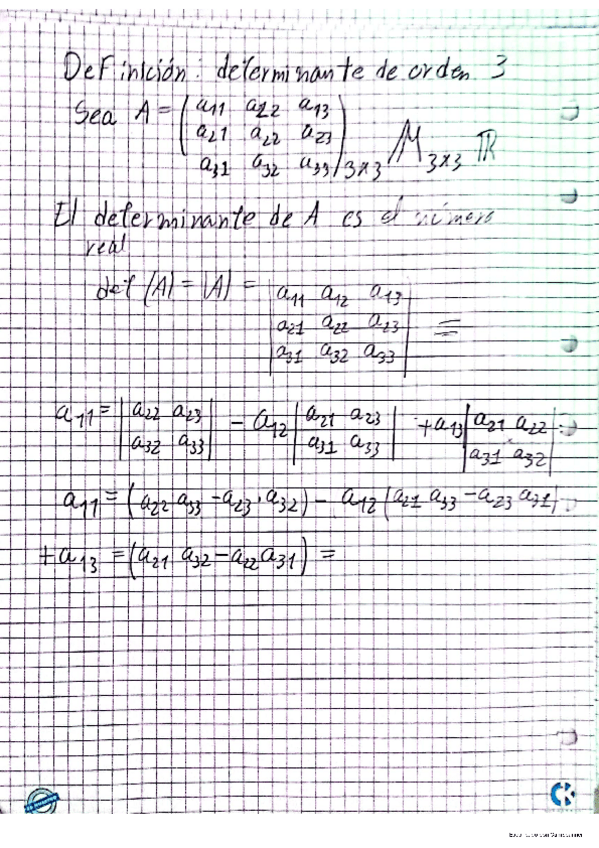 Definición: determinante de orden 3
Sea A = (a11 a12 a13
a21 a22 a23
a31 a32 a33)3x3 M3x3 ℝ
El determinante de A es el número
real
det (A) = |A| = |a11 a12 a13
a21 a22 a23 =
a31 a32 a33|
a11 = |a22 a23 - a12 |a21 a23 + a13 |a21 a22 =
a32 a33| a31 a33| a31 a32|
a11 = (a22 a33 - a23 · a32) - a12 (a21 a33 - a23 a31)
+ a13 = (a21 a32 - a22 a31) =
CK